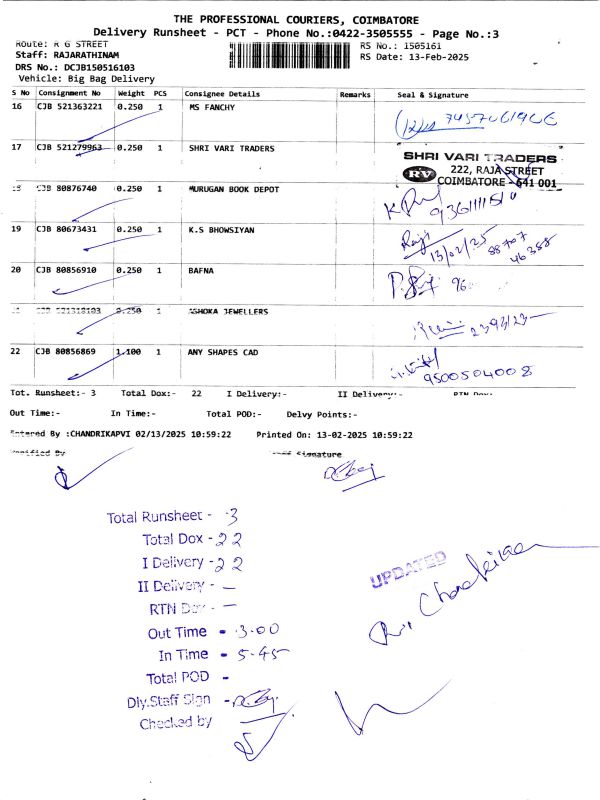 THE PROFESSIONAL COURIERS, COIMBATORE
Delivery Runsheet - PCT - Phone No.:0422-3505555 - Page No.:3
Route: R G STREET
RS No.: 1505161
Staff: RAJARATHINAM
RS Date: 13-Feb-2025
DRS No.: DCJB150516103
Vehicle: Big Bag Delivery
S No Consignment No Weight PCS Consignee Details Remarks Seal & Signature
16 CJB 521363221 0.250 1 MS FANCHY
17 CJB 521279963 0.250 1 SHRI VARI TRADERS
SHRI VARI TRADERS
RV 222, RAJA STREET
COIMBATORE - 641 001
CJB 80876740 0.250 1 MURUGAN BOOK DEPOT
19 CJB 80673431 0.250 1 K.S BHOWSIYAN
Raji 13/02/25
88707
46388
20 CJB 80856910 0.250 1 BAFNA
96
0.250 1 ASHOKA JEWELLERS
22 CJB 80856869 1.100 1 ANY SHAPES CAD
9500504008
Tot. Runsheet:- 3 Total Dox:- 22 I Delivery:- II Delivery:- RTN Dox:-
Out Time:- In Time:- Total POD:- Delvy Points:-
Entered By :CHANDRIKAPVI 02/13/2025 10:59:22 Printed On: 13-02-2025 10:59:22
Verified By Signature
Total Runsheet - 3
Total Dox - 22
I Delivery - 22
II Delivery - —
RTN Dox - —
Out Time - 3.00
In Time - 5.45
Total POD -
Dly.Staff Sign -
Checked by
UPDATED